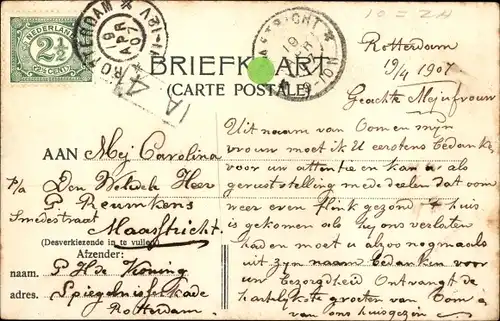 10 = ZH
NEDERLAND
2½
2½ CENT
ROTTERDAM
19 APR 07
MAASTRICHT
19
1A 4
BRIEFKAART
(CARTE POSTALE)
Rotterdam
19/4 1907
Geachte Mejufvrouw
AAN Mej Carolina
P/a Den Weledele Heer
P Reumkens
Smedestraat
Maastricht.
(Desverkiezende in te vullen)
Afzender:
naam. P H de Koning
adres. Spiegelnisserkade
Rotterdam
Uit naam van Oom en mijn
vrouw moet ik U eerstens bedanken
voor uw attentie en kan u als
geruststelling mededeelen dat oom
weer even flink gezond thuis
is gekomen als hij ons verlaten
had en moet u alzoo nogmaals
uit zijn naam bedanken voor
uw bezorgdheid Ontvangt de
hartelijkste groeten van Oom &
van ons huisgezin